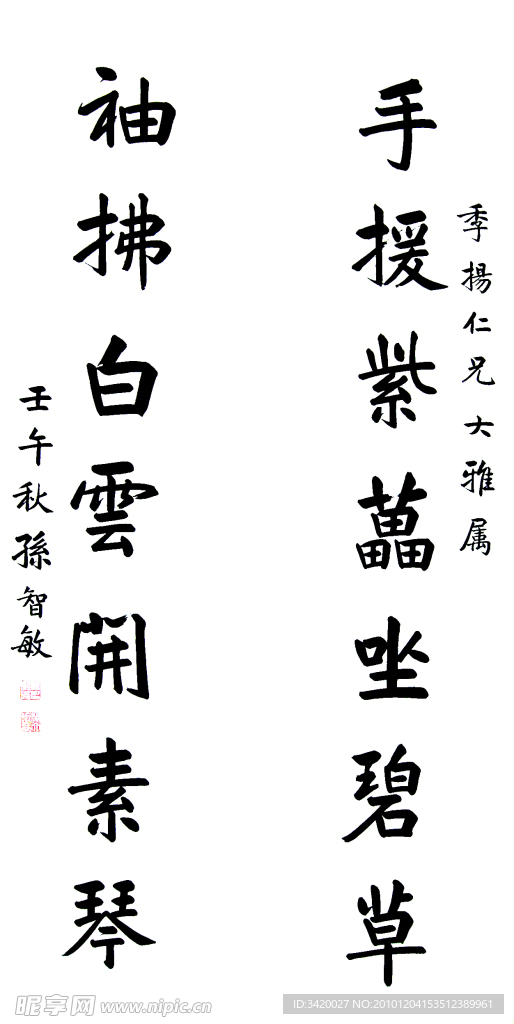 季揚仁兄大雅属
手援紫蕌坐碧草
袖拂白雲開素琴
壬午秋孫智敏
昵享网 www.nipic.cn
ID:3420027 NO:20101204153512389961